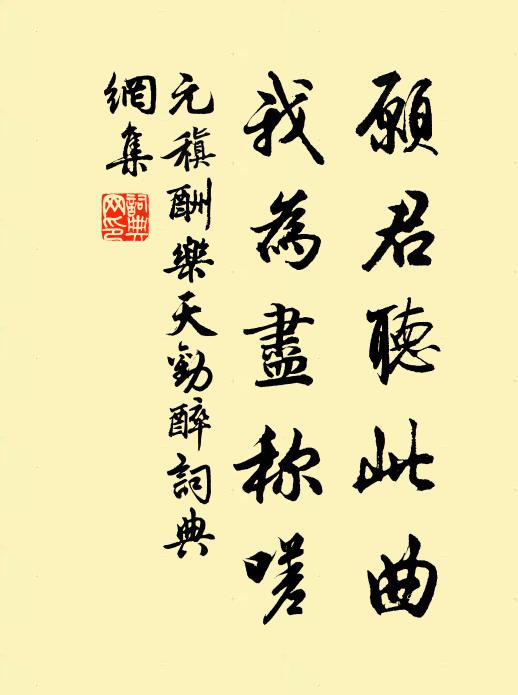 願君聽此曲
我為盡称嗟
元稹酬樂天勸醉詞典
網集
詞典網印